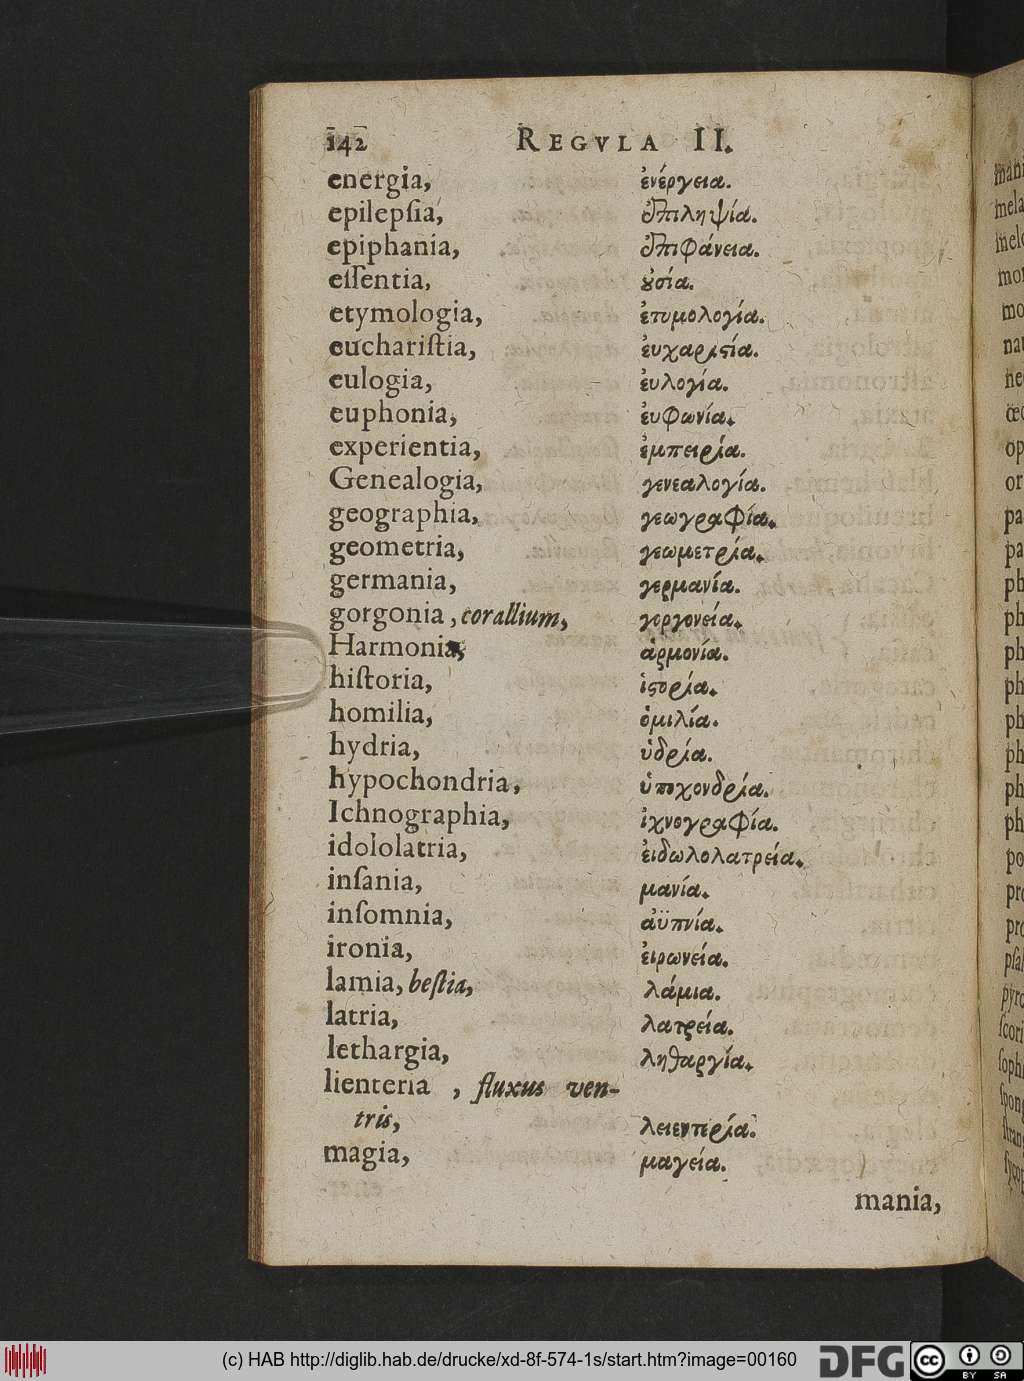 142 REGVLA II.
energia, ἐνέργεια.
epilepſia, ἐπιληψία.
epiphania, ἐπιφάνεια.
eſſentia, ȣ̓σία.
etymologia, ἐτυμολογία.
euchariſtia, ἐυχαριϛία.
eulogia, ἐυλογία.
euphonia, ἐυφωνία.
experientia, ἐμπειρία.
Genealogia, γενεαλογία.
geographia, γεωγραφία.
geometria, γεωμετρία.
germania, γερμανία.
gorgonia, corallium, γοργονεία.
Harmonia, ἁρμονία.
hiſtoria, ἱϛορία.
homilia, ὁμιλία.
hydria, ὑδρία.
hypochondria, ὑποχονδρία.
Ichnographia, ἰχνογραφία.
idololatria, ἐιδωλολατρεία.
inſania, μανία.
inſomnia, ἀϋπνία.
ironia, ἐιρωνεία.
lamia, beſtia, λάμια.
latria, λατρεία.
lethargia, ληθαργία.
lienteria, fluxus ven-
tris, λειεντερία.
magia, μαγεία.
mania,
(c) HAB http://diglib.hab.de/drucke/xd-8f-574-1s/start.htm?image=00160 DFG cc BY SA